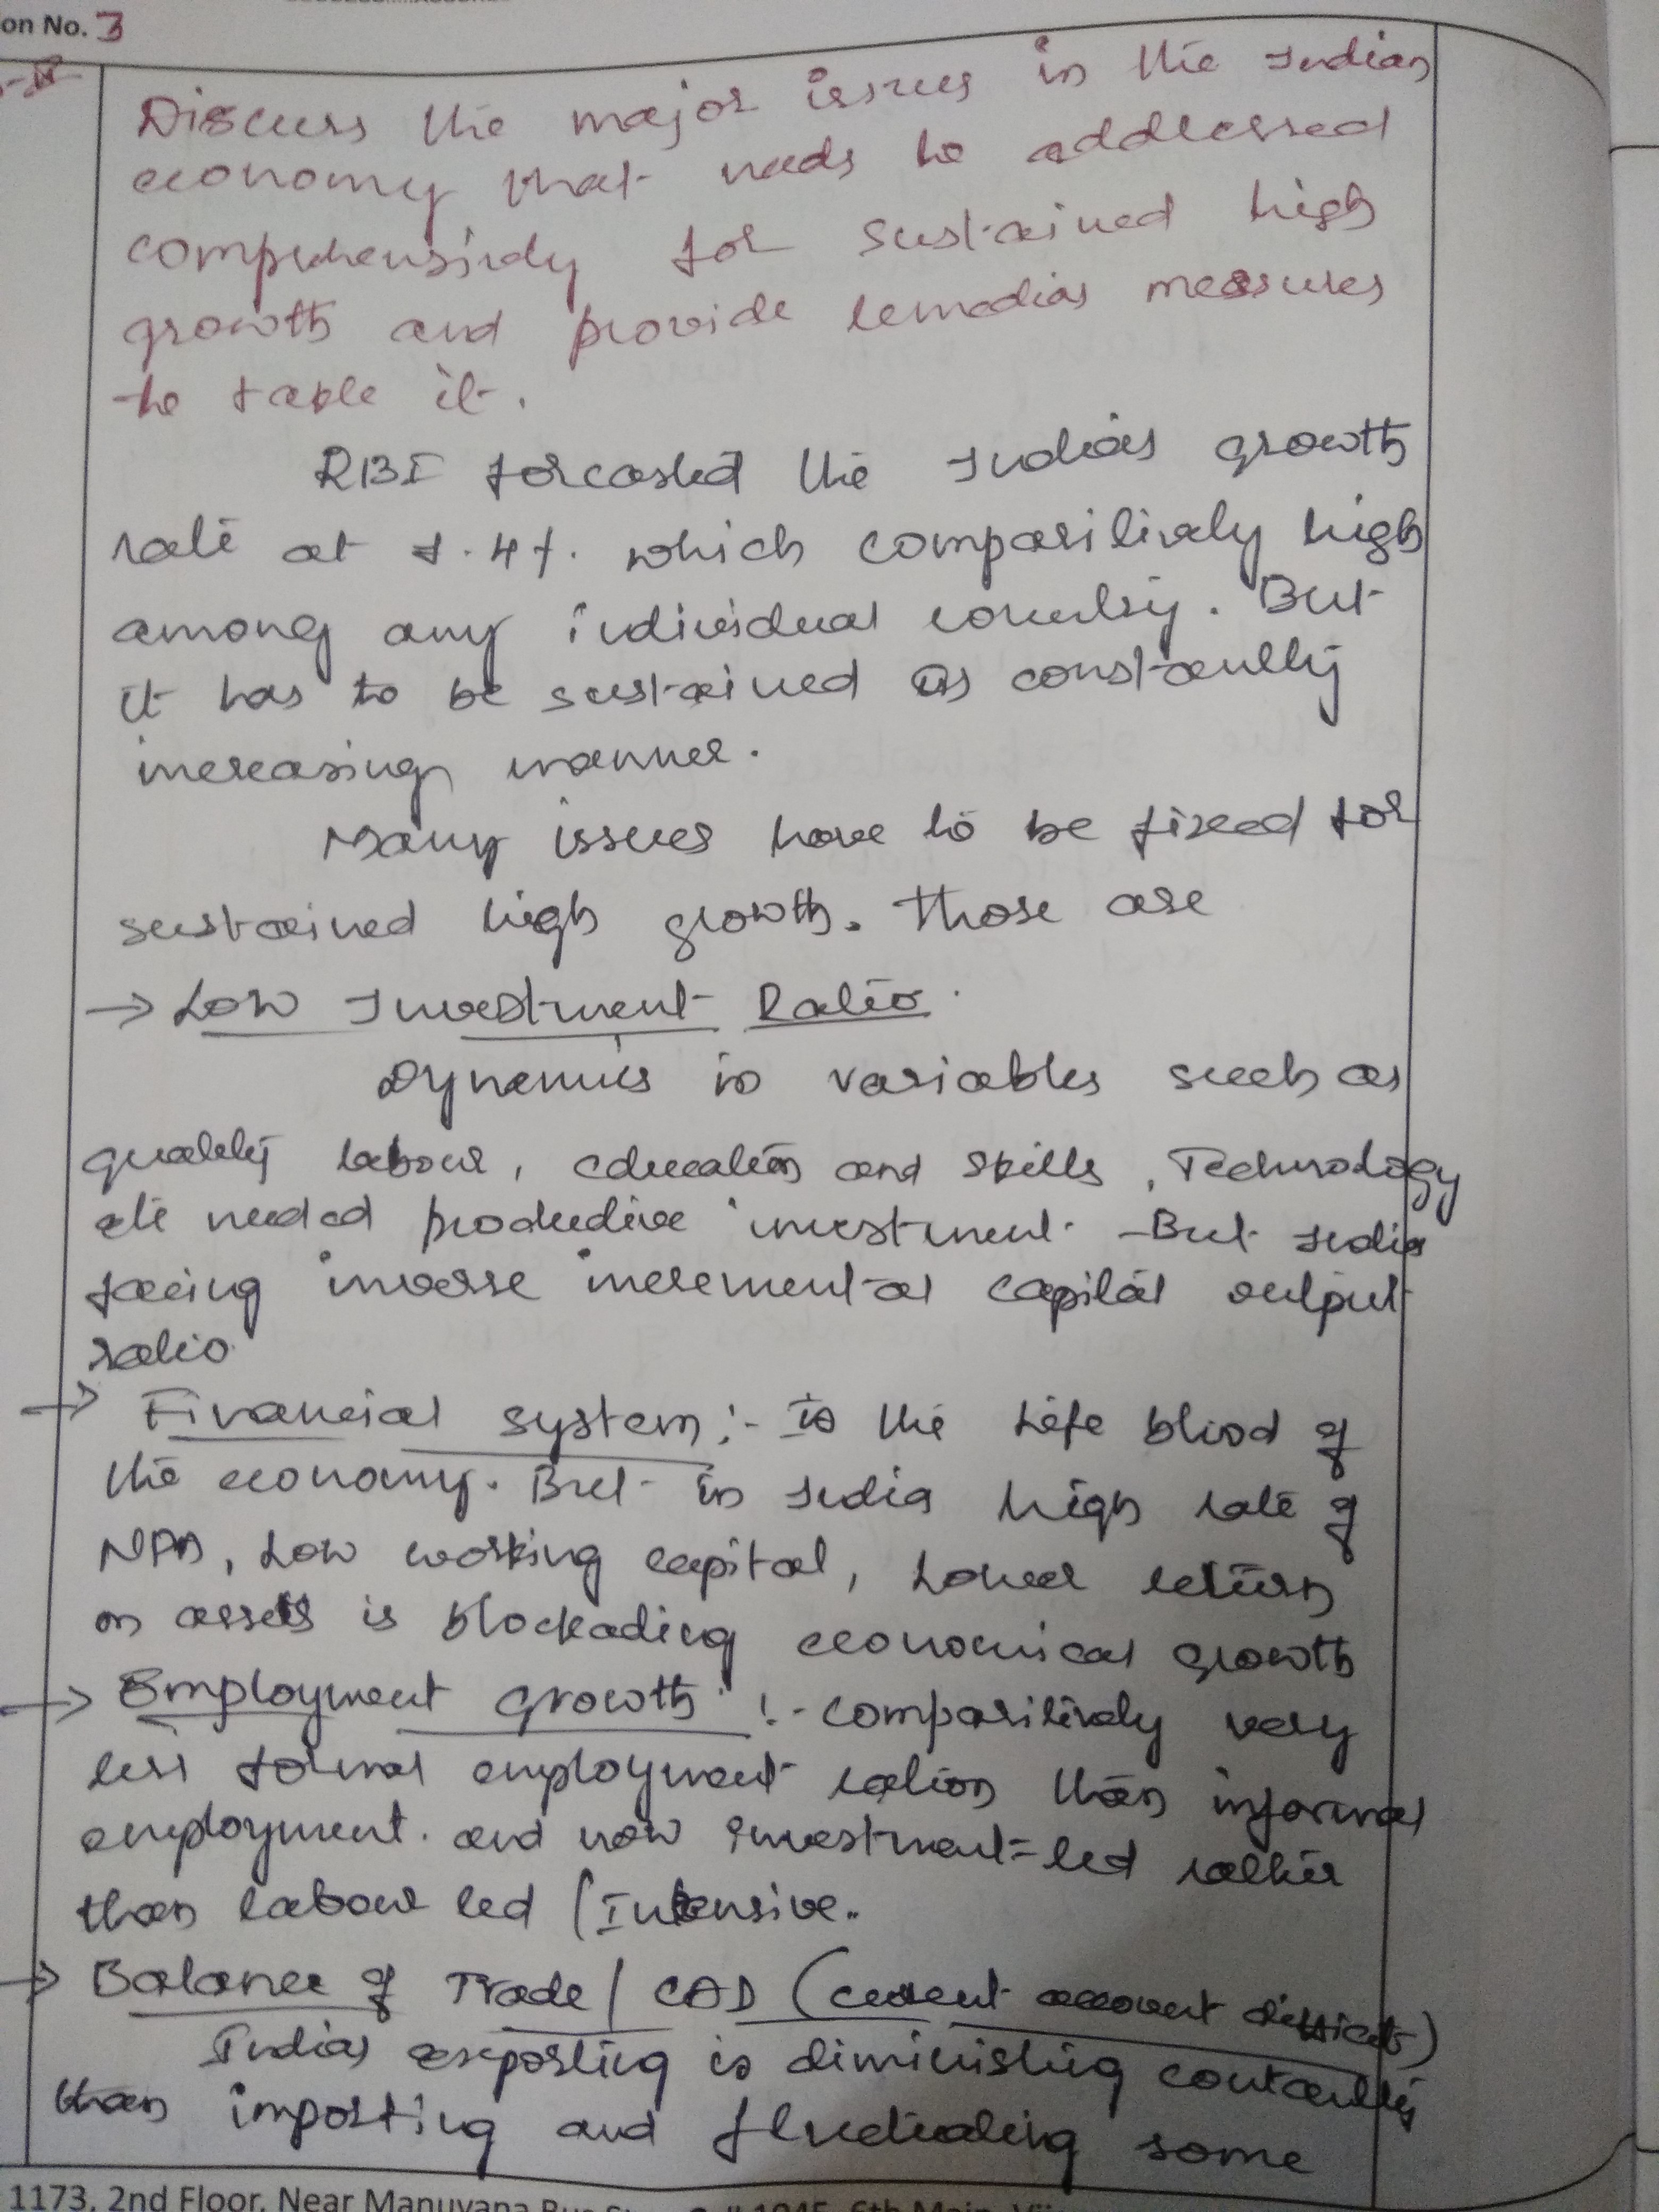 on No. 3
Discuss the major issues in the Indian
economy that needs to addressed
comprehensively for sustained high
growth and provide remedial measures
to table it.
RBI forcasted the India's growth
rate at 7.4%. which comparitively high
among any individual country. But
it has to be sustained as constantly
increasing manner.
Many issues have to be fixed for
sustained high growth. Those are
→ Low Investment Ratio.
Dynamics in variables such as
quality labour, education and skills, Technology
etc needed productive investment. But India
facing inverse incremental capital output
ratio.
→ Financial system :- Is the Life blood of
the economy. But in India high rate of
NPA, Low working capital, Lower return
on assets is blockading economical growth
→ Employment growth :- comparitively very
less formal employment ration than informal
employment. and now investment-led rather
than labour led / Intensive..
→ Balance of Trade / CAD (current account deffict)
India's exporting is diminishing contantly
than importing and fluctuating some
1173, 2nd Floor, Near Manuvana